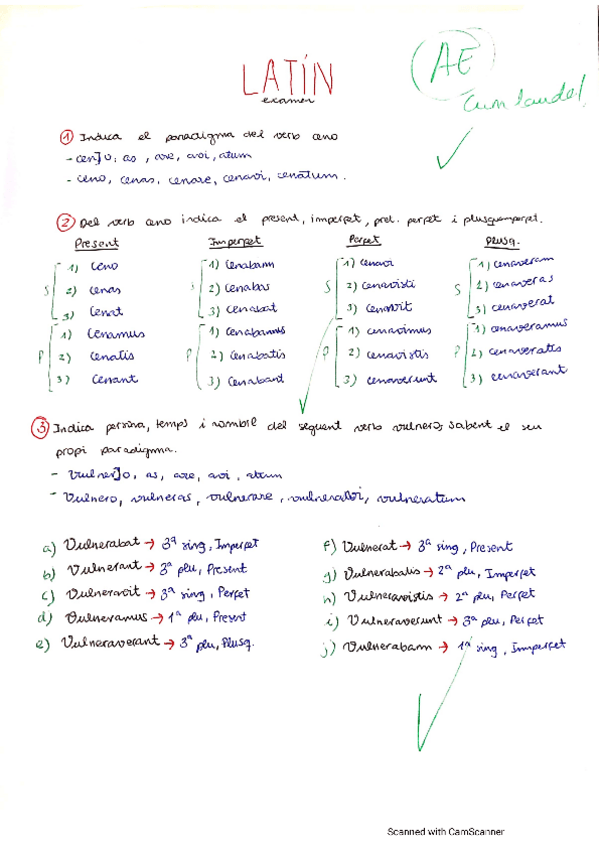 LATÍN
examen
AE
Cum laude!
1 Indica el paradigma del verb ceno
- cen]o, as, are, avi, atum
- ceno, cenas, cenare, cenavi, cenatum.
2 Del verb ceno indica el present, imperfet, pret. perfet i plusquamperfet.
Present Imperfet Perfet Plusq.
S 1) Ceno S 1) Cenabam S 1) Cenavi S 1) cenaveram
2) Cenas 2) Cenabas 2) Cenavisti 2) cenaveras
3) Cenat 3) Cenabat 3) Cenavit 3) cenaverat
P 1) Cenamus P 1) Cenabamus P 1) cenavimus P 1) cenaveramus
2) Cenatis 2) Cenabatis 2) cenavistis 2) cenaveratis
3) Cenant 3) Cenabant 3) cenaverunt 3) cenaverant
3 Indica persona, temps i nombre del seguent verb vulnero, sabent el seu
propi paradigma.
- Vulner]o, as, are, avi, atum
- Vulnero, vulneras, vulnerare, vulneravi, vulneratum
a) Vulnerabat → 3ª sing, Imperfet
b) Vulnerant → 3ª plu, Present
c) Vulneravit → 3ª sing, Perfet
d) Vulneramus → 1ª plu, Present
e) Vulneraverant → 3ª plu, Plusq.
f) Vulnerat → 3ª sing, Present
g) Vulnerabatis → 2ª plu, Imperfet
h) Vulneravistis → 2ª plu, Perfet
i) Vulneraverunt → 3ª plu, Perfet
j) Vulnerabam → 1ª sing, Imperfet
Scanned with CamScanner